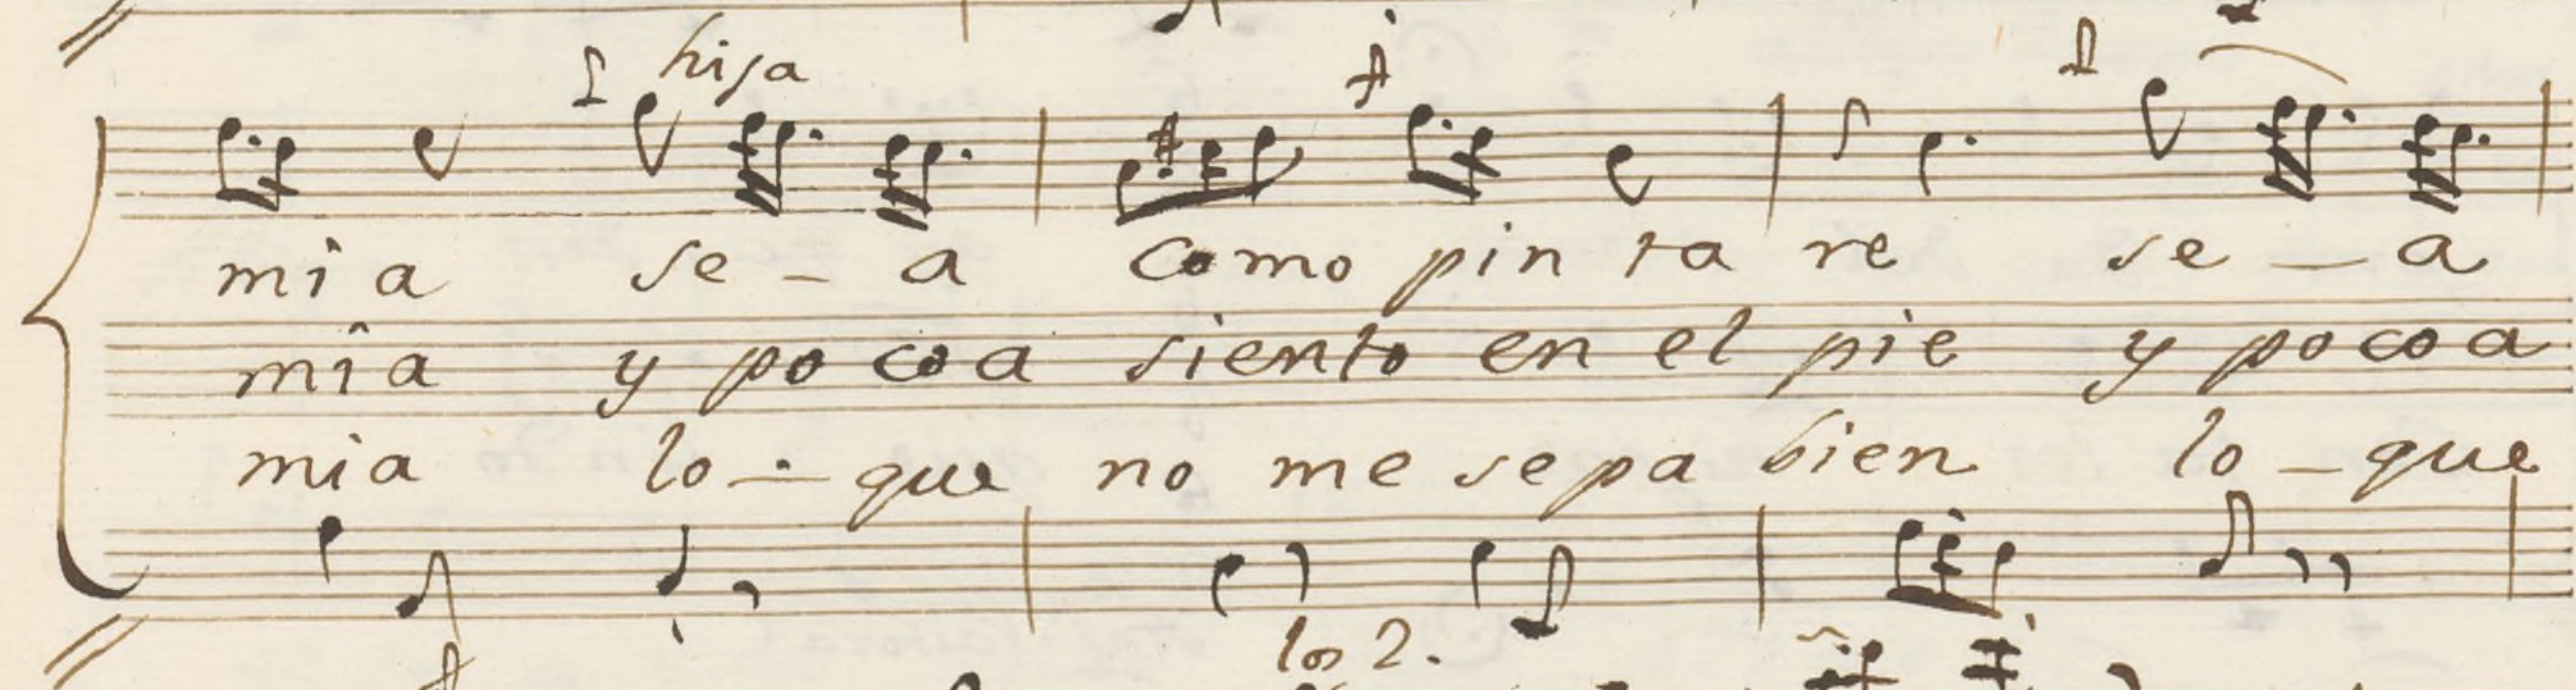 hija
mia se - a como pin ta re se - a
mîa y po co a siento en el pie y po co a
mia lo - que no me sepa bien lo - que
los 2.